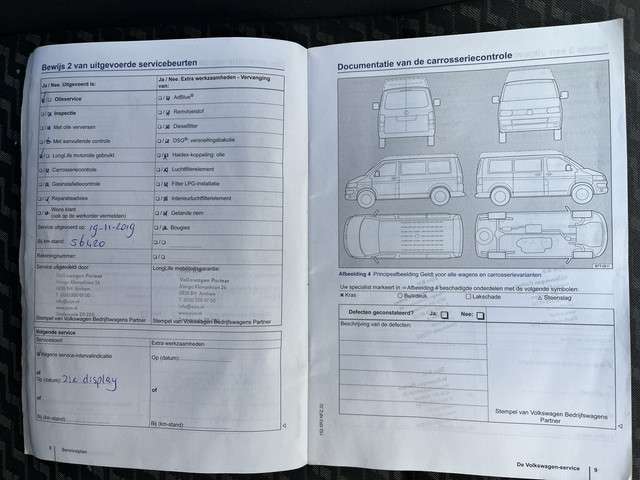 Bewijs 2 van uitgevoerde servicebeurten
Ja / Nee Uitgevoerd is:
Ja / Nee: Extra werkzaamheden - Vervanging van:
Olieservice
AdBlue®
Inspectie
Remvloeistof
Met olie verversen
Dieselfilter
Met aanvullende controle
DSG® versnellingsbakolie
LongLife motorolie gebruikt
Haldex-koppeling: olie
Carrosseriecontrole
Luchtfilterelement
Gasinstallatiecontrole
Filter LPG-installatie
Reparatieadvies
Interieurluchtfilterelement
Wens klant
(ook op de werkorder vermelden)
Getande riem
Service uitgevoerd op: 19-11-2019
Bougies
Bij km-stand: 56420
Rekeningnummer:
Service uitgevoerd door:
LongLife mobiliteitsgarantie:
Volkswagen Partner
Stempel van Volkswagen Bedrijfswagens Partner
Stempel van Volkswagen Bedrijfswagens Partner
Volgende service
Servicesoort
Extra werkzaamheden
Volgens service-intervalindicatie
Op (datum):
of
Op (datum): zie display
of
of
Bij (km-stand):
Bij (km-stand):
8 Serviceplan
Documentatie van de carrosseriecontrole
Afbeelding 4 Principeafbeelding Geldt voor alle wagens en carrosserievarianten
Uw specialist markeert in ⇒ Afbeelding 4 beschadigde onderdelen met de volgende symbolen:
Kras
Buts/deuk
Lakschade
Steenslag
Defecten geconstateerd? Ja: Nee:
Beschrijving van de defecten:
Stempel van Volkswagen Bedrijfswagens
Partner
De Volkswagen-service 9